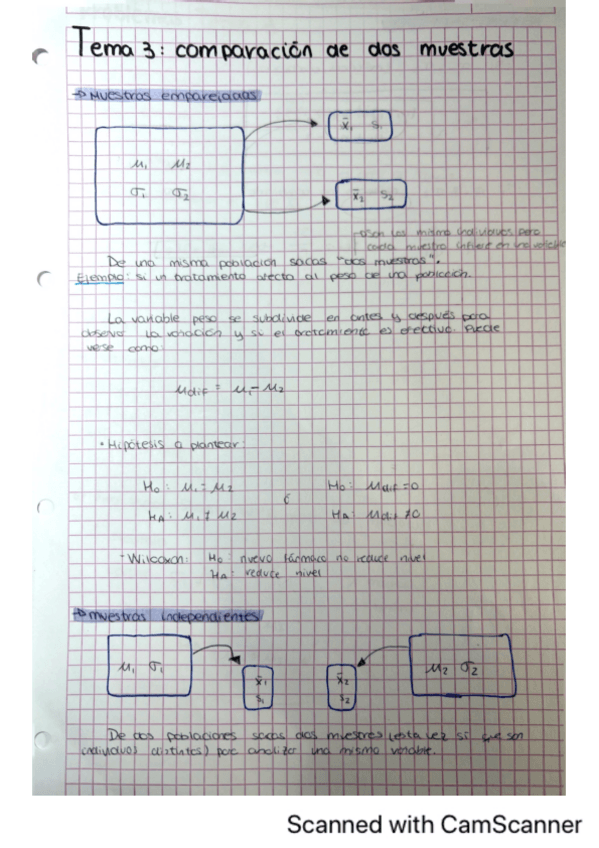 Tema 3: comparación de dos muestras
→ Muestras emparejadas
x̄₁ s₁
μ₁ μ₂
σ₁ σ₂
x̄₂ s₂
son los mismo individuos pero
cada muestra
De una misma población sacas "dos muestras".
Ejemplo: si un tratamiento afecta al peso de una población.
La variable peso se subdivide en antes y después para
observar la variación y si el tratamiento es efectivo. Puede
verse como:
μdif = μ₁ - μ₂
• Hipótesis a plantear:
H₀: μ₁ = μ₂ ó H₀: μdif = 0
HA: μ₁ ≠ μ₂ HA: μdif ≠ 0
- Wilcoxon: H₀: nuevo fármaco no reduce nivel
HA: reduce nivel
→ muestras independientes
μ₁ σ₁
x̄₁
s₁
x̄₂
s₂
μ₂ σ₂
De dos poblaciones sacas dos muestras (esta vez si que son
individuos distintos) para analizar una misma variable.
Scanned with CamScanner